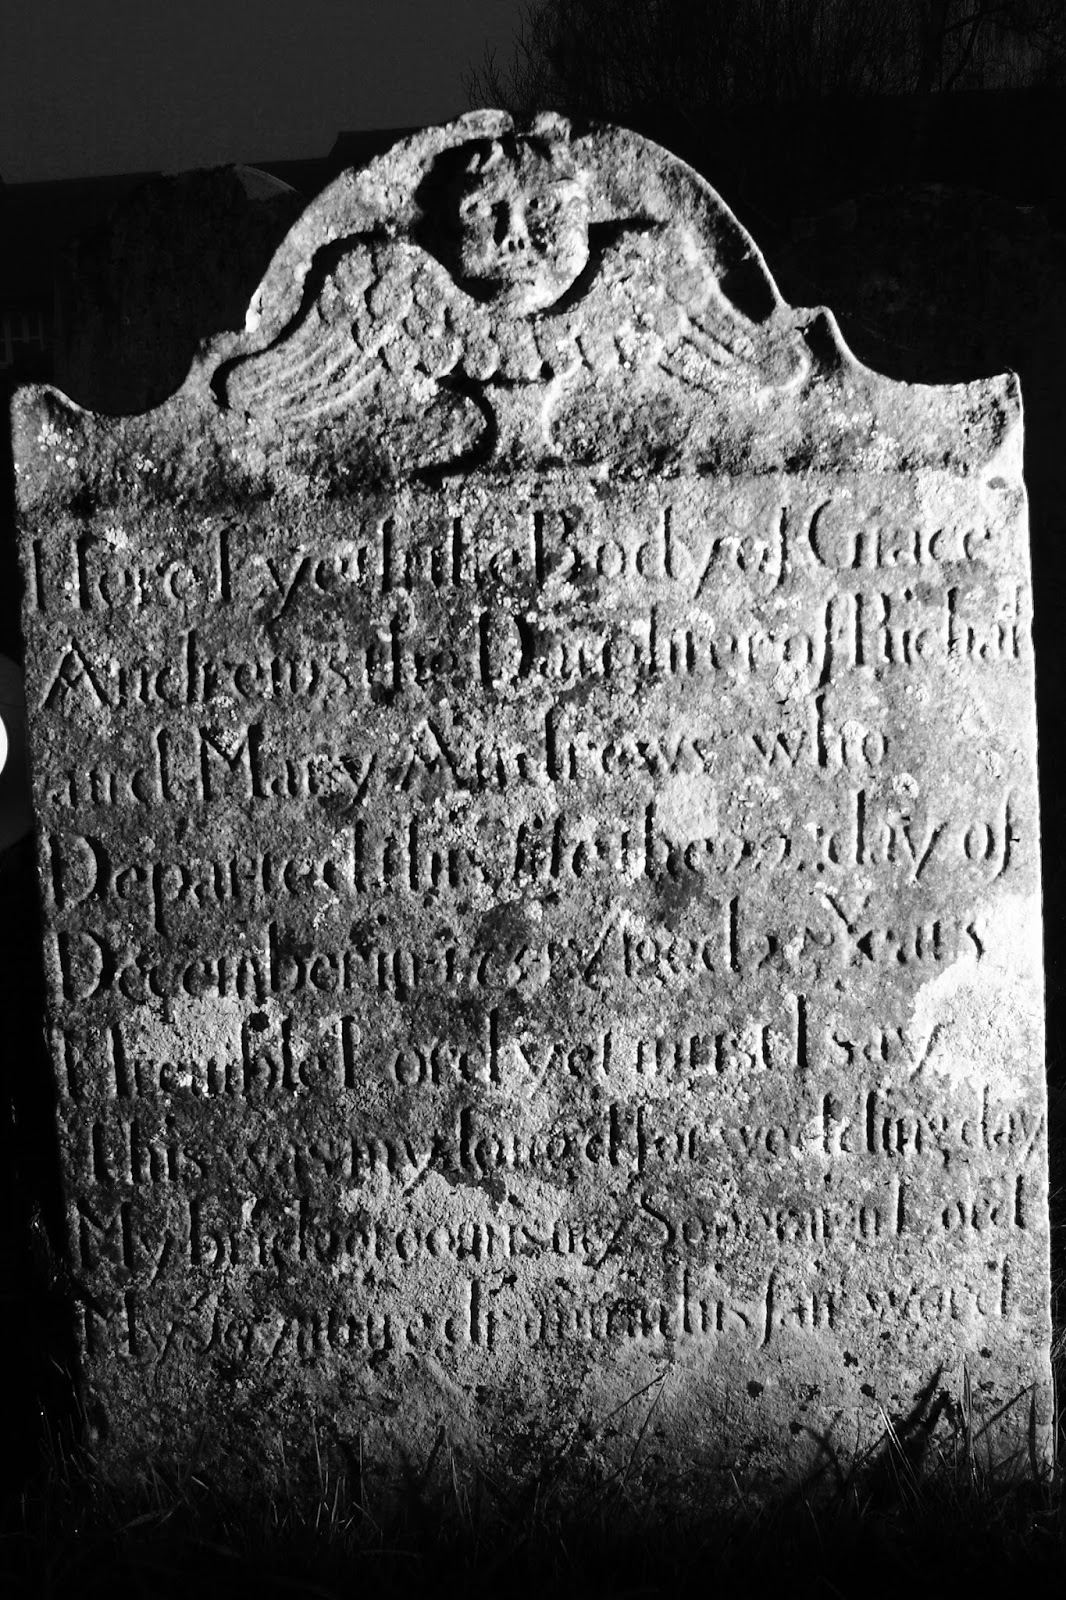 Here Lyeth the Body of Grace
Andrews the Daughter of Richard
and Mary Andrews who
Departed this life the 22 day of
December in Aged Years
I treuble Lord yet must I say
This was my for wedding day
My bridegroom is my Soveraign Lord
My joynture